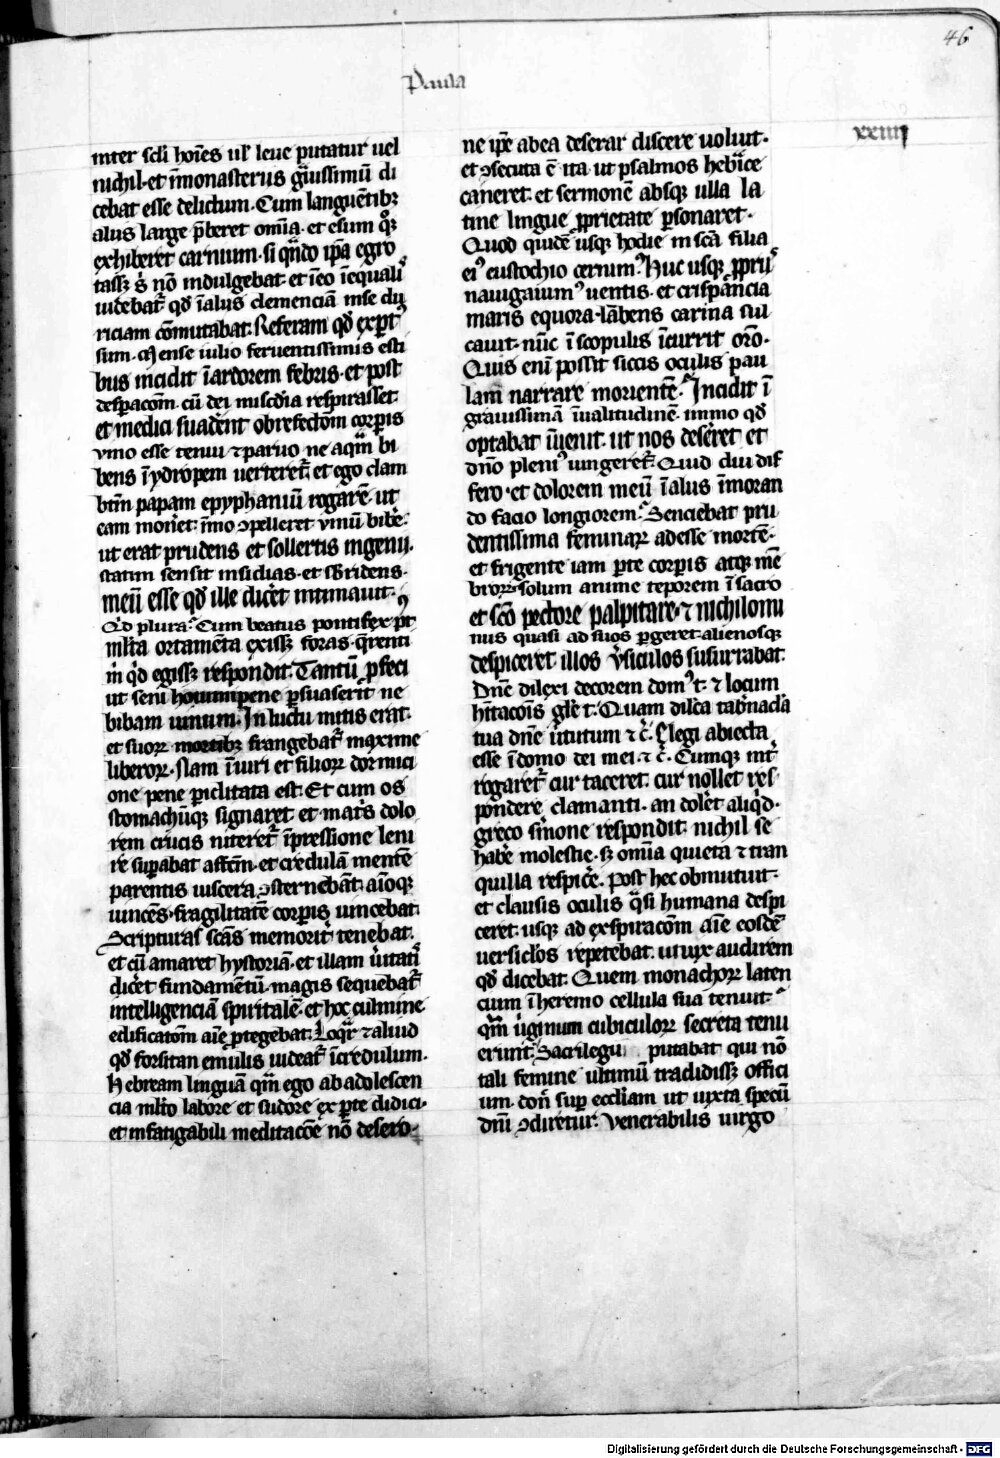 46
Paula
xxiiij
inter sc̄li hoīes ul' leue putatur uel
nichil· et ī monasterijs g̃uissimū di
cebat esse delictum· Cum languētibꝫ
alijs large p̄beret omīa· et esum q̊ꝫ
exhiberet carnium· si qn̄do ip̄a egro
tass₃ s̄ nō indulgebat· et iō īequal'
uidebat᷑ qd̄ ī alijs clemenciā in se du
riciam cōmutabat· Referam qd̄ exp̄t᷒
sum· Mense iulio feruentissimis esti
bus incidit ī ardorem febris· et post
desp̱acōm· cū dei misc̄dia respirasset
et medici suadent ob refectōm corp̱is
vino esse tenui ⁊ paruo ne aqm̄ bi
bens ī ydropem uerteret᷑· et ego clam
btm̄ papam epyphaniū rogarē· ut
eam mon̄et· īmo ꝯpelleret vinū bibe᷑·
ut erat prudens et sollertis ingenij·
statim sensit insidias· et sb̄ridens·
meū esse qd̄ ille dic̄et intimauit·
Qd̄ plura· Cum beatus pontifex p̄t
ml̄ta ortamēta exiss₃ foras· q̄renti
m̄ qd̄ egiss₃ respondit· Tantū ꝓfeci
ut seni homini pene p̱suaserit ne
bibam uinum· In luctu mitis erat·
et suoꝝ mortibꝫ frangebat᷑ maxime
liberoꝝ· Nam ī uiri et filioꝝ dormici
one pene p̱iclitata est· Et cum os
stomachūqꝫ signaret· et mat̄s dolo
rem crucis niteret᷑ īpressione leni
re sup̱abat affcm̄· et credulā mentē
parentis uiscera ꝯsternebāt· aīoqꝫ
uincēs· fragilitatē corp̱is uincebat·
Scripturas sc̄as memorit̄ tenebat·
et cū amaret hystoriā· et illam ūitatī
dic̄et fundamētū· magis sequebat᷑
intelligenciā spūitalē· et hoc culmine
edificatōm aīe ꝓtegebat· Loqr̄ ⁊ aliud
qd̄ forsitan emulis uideat᷑ īcredulum·
Hebream linguā qm̄ ego ab adolescen
cia ml̄to labore et sudore ex p̱te didici·
et infatigabili meditacōe nō desero·
ne ip̄e ab ea deserar discere uoluit·
et ꝯsecuta ē ita ut psalmos heb̄ice
caneret· et sermonē absqꝫ ulla la
tine lingue ꝓprietate p̱sonaret·
Quod quidē usqꝫ hodie in sc̄a filia
ei᷒ eustochio cernim᷒· Huc usqꝫ ꝓprijs
nauigauim᷒ uentis· et crispāncia
maris equora· lābens carina sul
cauit· nūc ī scopulis īcurrit orō·
Quis enī possit siccis oculis pau
lam narrare morientē· Incidit ī
grauissimā īualitudinē· immo qd̄
optabat īuenit· ut nos deseret et
dn̄o pleni᷒ iungeret᷑· Quid diu dif
fero· et dolorem meū ī alijs īmoran
do facio longiorem· Senciebat pru
dentissima feminaꝝ adesse mortē·
et frigente iam p̱te corp̱is atqꝫ mē
broꝝ· solum anime teporem ī sacro
et sc̄o pectore palpitare· ⁊ nichilomi
nus quasi ad suos p̱geret· alienosqꝫ
despiceret illos v̄siculos susurrabat·
Dn̄e dilexi decorem dom᷒ t· ⁊ locum
hītacōis gl̄e t· Quam dilc̄a tab̄nacl̄a
tua dn̄e ūtutum ⁊ c̄· Elegi abiecta
esse ī domo dei mei· ⁊ c̄· Cumqꝫ int̄
rogaret᷑ cur taceret· cur nollet res
pondere clamanti· an dol̄et aliqd̄·
greco s̄mone respondit nichil se
habe᷑ molestie· s₃ omīa quieta ⁊ tran
quilla respice᷑· Post hec obmutuit·
et clausis oculis q̄si humana despi
ceret· usqꝫ ad exspiracōm aīe eosdē
uersicl̄os repetebat· ut uix audirem
qd̄ dicebat· Quem monachoꝝ laten
cium ī heremo cellula sua tenuit·
qm̄ ūginum cubiculoꝝ secreta tenu
erunt· Sacrilegu putabat qui nō
tali femine ultimū tradidiss₃ offici
um· don̄ sup̱ eccl̄iam ut iuxta specū
dn̄i ꝯdiretur· Venerabilis uirgo
Digitalisierung gefördert durch die Deutsche Forschungsgemeinschaft - DFG